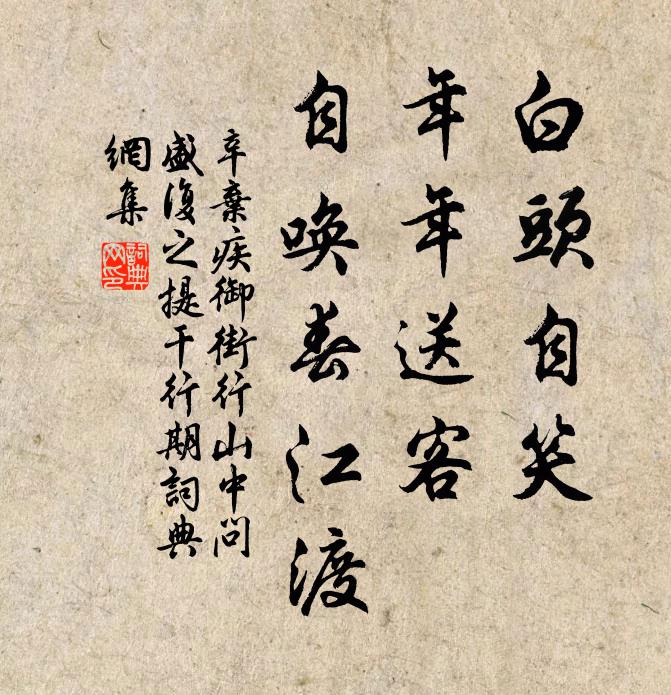 白頭自笑
年年送客
自喚春江渡
辛棄疾御街行山中問
盛復之提干行期詞典
網集
詞典網印